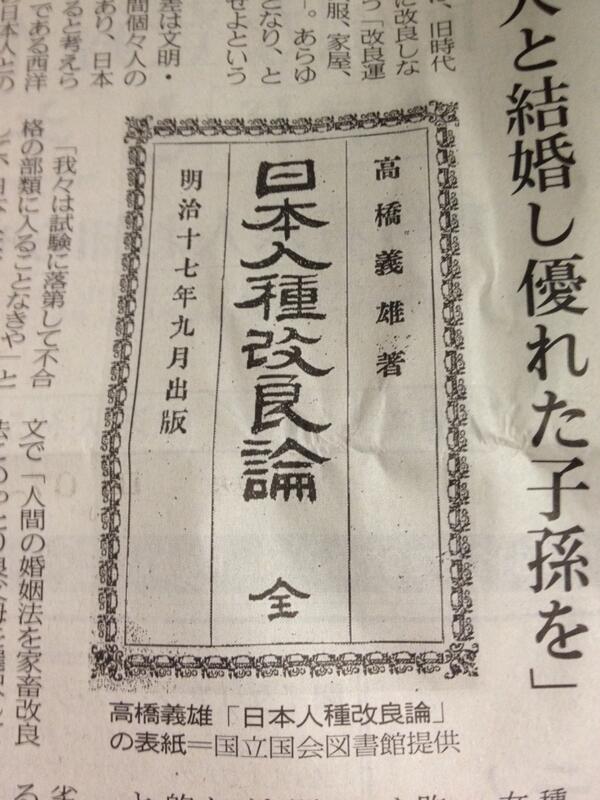 人と結婚し優れた子孫を」
に、旧時代
に改良しな
つ「改良運
服、家屋、
」。あらゆ
となり、と
せよという
差は文明・
間個々人の
あり、日本
ると考えら
である西洋
日本人との
高橋義雄著
日本人種改良論 全
明治十七年九月出版
高橋義雄「日本人種改良論」
の表紙=国立国会図書館提供
「我々は試験に落第して不合
格の部類に入ることなきや」と
文で「人間の婚姻法を家畜改良
種
る